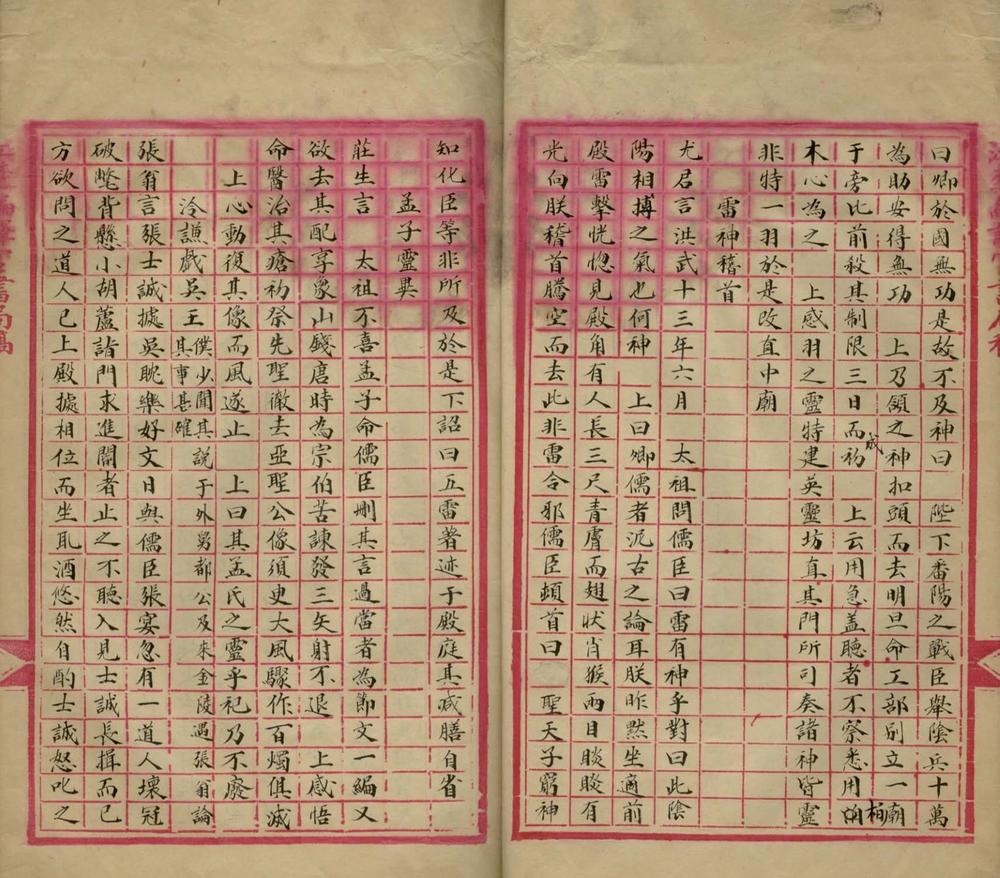 曰卿於國無功是故不及神曰　陛下番陽之戰臣舉陰兵十萬
為助安得無功　上乃領之神扣頭而去明旦命工部別立一廟
于旁比前殺其制限三日而成礿　上云用急盖聽者不察悉用柏
木心為之　上感羽之靈特建英靈坊直其門所司奏諸神皆靈
非特一羽於是改直中廟
雷神稽首
尤君言洪武十三年六月　太祖問儒臣曰雷有神乎對曰此陰
陽相搏之氣也何神　上曰卿儒者泥古之論耳朕昨黙坐適前
殿雷擊恍惚見殿角有人長三尺青膚而翅状肖猴兩目睒睒有
光向朕稽首騰空而去此非雷令邪儒臣頓首曰　聖天子窮神
知化臣等非所及於是下詔曰五雷著迹于殿庭其减膳自省
孟子靈異
莊生言　太祖不喜孟子命儒臣刪其言過當者為節文一編又
欲去其配享象山錢唐時為宗伯苦諫發三矢射不退　上感悟
命醫治其瘡初祭先聖徹去亞聖公像須更大風驟作百燭俱滅
上心動復其像而風遂止　上曰其孟氏之靈乎祀乃不廢
冷謙戲吳王僕少聞其說于外舅都公及來金陵遇張翁論其事甚確
張翁言張士誠據吳眈樂好文日與儒臣張宴忽有一道人壞冠
破氅背縣小胡蘆詣門求進閽者止之不聽入見士誠長揖而已
方欲問之道人已上殿據相位而坐酒悠然自酌士誠怒叱之